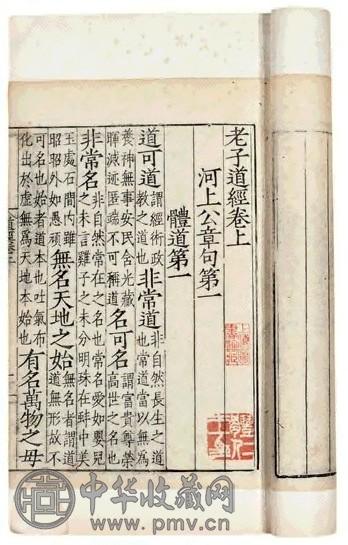 老子道經卷上
河上公章句第一
體道第一
道可道謂經術政教之道也非常道非自然長生之道也常道當以無為
養神無事安民含光藏暉滅迹匿端不可稱道名可名謂富貴尊榮高世之名也
非常名非自然常在之名也常名愛如嬰兒之未言雞子之未分明珠在蚌中美
玉處石間內雖昭昭外如愚頑無名天地之始無名者謂道道無形故不
可名也始者道本也吐氣布化出於虛無為天地本始也有名萬物之母
中华收藏网
www.pmv.cn